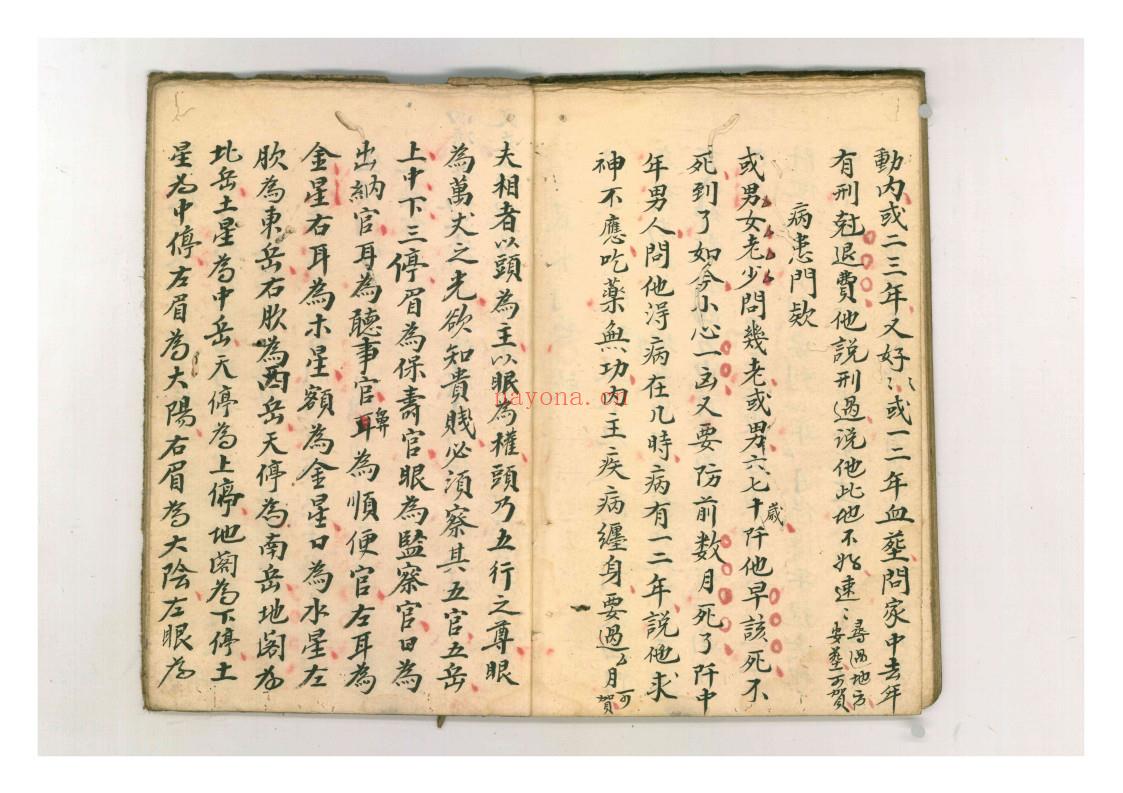 動內或二三年又好〻或一二年血塟問家中去年
有刑尅退費他說刑過说他此地不好速〻尋過地方安塟可賀
病患門欵
或男女老少問幾老或男六七十歲阡他早該死不
死到了如今小心一凶又要防前数月死了阡中
年男人問他淂病在几時病有一二年說他求
神不應吃藥無功內主疾病纏身要過 月可賀
夫相者以頭為主以眼為權頭乃五行之尊眼
為萬丈之光欲知貴賤必須察其五官五岳
上中下三停眉為保壽官眼為監察官口為
出納官耳為聽事官鼻為順便官左耳為
金星右耳為木星額為金星口為水星左
肷為東岳右肷為西岳天停為南岳地阁為
北岳土星為中岳天停為上停地阁為下停土
星為中停左眉為大陽右眉為大陰左眼為
nayona.cn